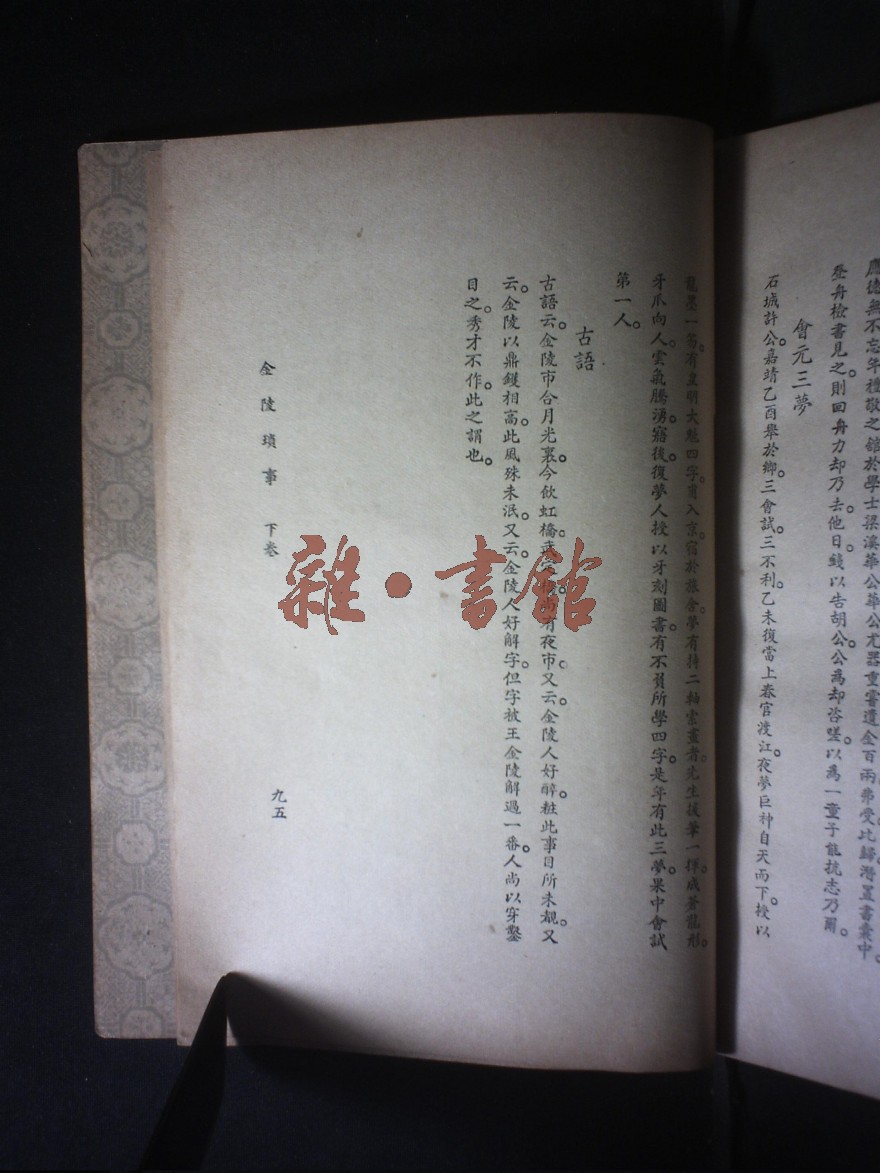 應德無不忘年禮敬之館於學士梁溪華公華公尤器重嘗遺金百兩弗受比歸潛置書橐中
登舟檢書見之。則回舟力却乃去。他日。錢以告胡公。公為却咨嗟。以為一童子能抗志乃爾。
會元三夢
石城許公。嘉靖乙酉舉於鄉。三會試。三不利。乙未復當上春官。渡江。夜夢巨神自天而下。授以
龍墨一笏。有 明大魁四字。 入京。宿於旅舍。 有持二軸索畫者。先生拔筆一揮。成蒼龍形。
牙爪向人。雲氣騰湧。寤後。復夢人授以牙刻圖書。有不負所學四字。是年有此三夢。果中會試
第一人。
古語
古語云。金陵市合月光裏。今 虹橋。 有夜市。又云。金陵人好醉粧。此事目所未覩。又
云。金陵以鼎鑊相高。此風殊未泯。又云。金陵人好解字。但字被王金陵解過一番。人尚以穿鑿
目之。秀才不作。此之謂也。
金陵瑣事 下卷
九五
雜·書館